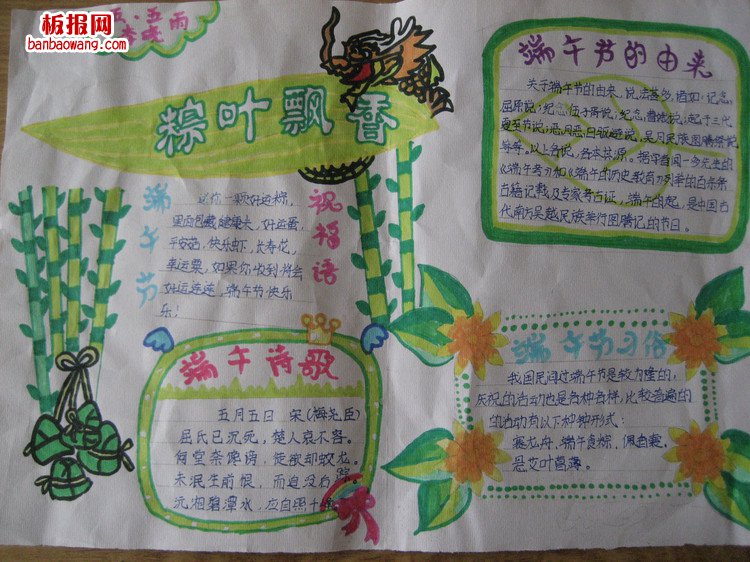 板报网
banbaowang.com
五·五
粽叶飘香
端午节
祝福语
送你一颗好运粽,
里面包藏健康火,好运蛋,
平安菇,快乐虾,长寿花,
幸运栗,如果你收到将会
好运连连,端午节快乐
乐!
端午诗歌
五月五日 宋(梅尧臣)
屈氏已沉死,楚人哀不容。
何尝奈谗谤,徒欲却蛟龙。
未泯生前恨,而追没后踪。
沅湘碧潭水,应自照千
端午节的由来
关于端午节的由来,说法甚多,诸如:纪念
屈原说;纪念伍子胥说;纪念曹娥说;起于三代
夏至节说;恶月恶日驱避说,吴月民族图腾祭说
等等。以上各说,各本其源。据学者闻一多先生的
《端午考》和《端午的历史教育》列举的百余条
古籍记载及专家考古证,端午的起,是中国古
代南方吴越民族举行图腾记的节日。
端午节习俗
我国民间过端午节是较为隆的,
庆祝的活动也是各种各样,比较普遍的
的活动有以下种种形式:
赛龙舟,端午食粽,佩香囊,
悬艾叶菖蒲。